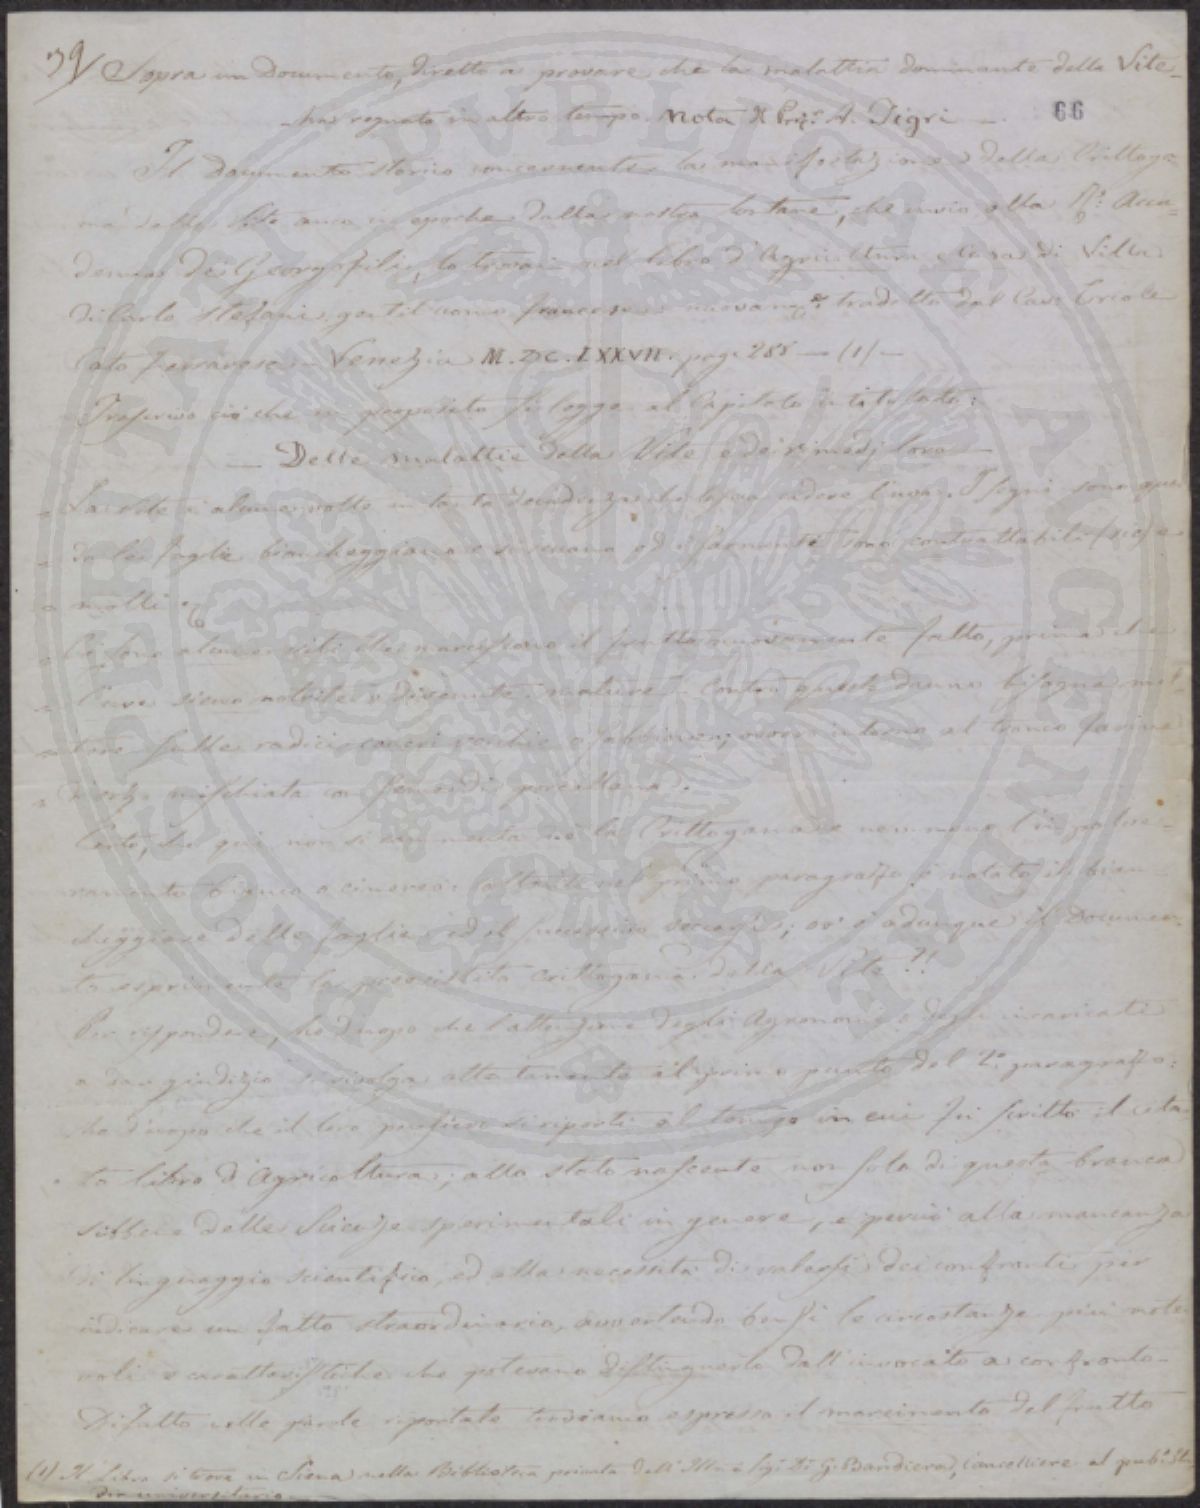 39/ Sopra un Documento, diretto a provare che la malattia dominante della Vite
ha regnato in altro tempo. Nota del Prof. A. Tigri —.
66
Il documento storico concernente la manifestazione della Crittoga-
ma della Vite anco in epoche dalla nostra lontane, che invio alla Rª: Acca=
demia dei Georgofili, lo trovai nel libro d'Agricoltura e Casa di Villa
di Carlo Stefani gentil'uomo francese nuovamte: tradotto dal Cav: Ercole
Cato ferrarese — Venezia M.DC.LXXVII. pag. 288 — (1) —
Trascrivo ciò che in proposito si legge al Capitolo intitolato:
— Delle malattie della Vite e dei rimedj loro —
„ La Vite è alcune volte in tanta che lascia cadere l'uva. I segni sono quan
„ do le foglie biancheggiano e si seccano ed i sarmenti sono contrattabili (sic) e
„ molli.
„ Ci sono alcune viti che marciscono il frutto nuovamente fatto, prima che
„ l'uve sieno nobilite o divenute mature. Contra questo danno bisogna met=
„ tere sulle radici ceneri vecchie o sabbione, ovvero intorno al tronco farina
„ d'orzo mischiata con seme di porcellana.
Certo, che qui non si rammenta nè la Crittogama e nemmeno l'impolve-
ramento bianco o cinereo: altresì nel primo paragrafo è notato il bian-
cheggiare delle foglie ed il successivo seccarsi; ov'è adunque il Documen-
to esprimente la preesistita crittogama della Vite?!
Per rispondere, ho d'uopo che l'attenzione degli Agronomi e degli incaricati
a dar giudizio si rivolga attentamente al primo punto del 2º paragrafo:
ho d'uopo che il loro pensiero si riporti al tempo in cui fu scritto il cita
to libro d'Agricoltura; allo stato nascente non solo di questa branca
sibbene delle Scienze sperimentali in genere, e perciò alla mancanza
di linguaggio scientifico, ed alla necessità di valersi dei confronti per
indicare un fatto straordinario, avvertendo bensì le circostanze più note
voli e caratteristiche che potevano distinguerlo dall'invocato a confronto.
Difatto nelle parole riportate troviamo espresso il marcimento del frutto
(1) Il Libro si trova in Siena nella Biblioteca privata dell'Illmo Sigr Dr G. Bandiera, Cancelliere al pubº: Stu
dio universitario.